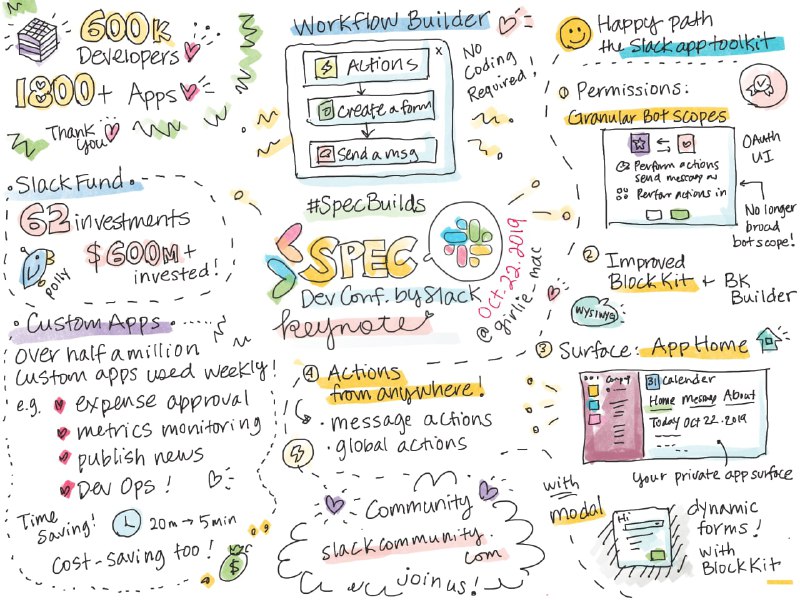 600K
Developers
1800+ Apps
Thank
you
Slack Fund
62 investments
$600M+
invested!
polly
Custom Apps
over half a million
custom apps used weekly!
e.g.
expense approval
metrics monitoring
publish news
Dev Ops!
Time
Saving!
20m → 5min
cost-saving too!
$
Workflow Builder
x
Actions
Create a form
Send a msg
No
Coding
Required!
#SpecBuilds
SPEC
Dev Conf. by Slack
keynote
Oct. 22. 2019
@girlie_mac
④ Actions
from anywhere!
· message actions
· global actions
Community
slackcommunity.
com
join us!
Happy path
the Slack app toolkit
① Permissions:
Granular Bot scopes
Perform actions
send message
Perform actions in
OAuth
UI
No longer
broad
bot scope!
② Improved
Block Kit + BK
Builder
WYSIWYG
③ Surface: App Home
31 Calender
Home Message About
Today Oct 22. 2019
your private app surface
with
modal
Hi
dynamic
forms!
with
Block Kit